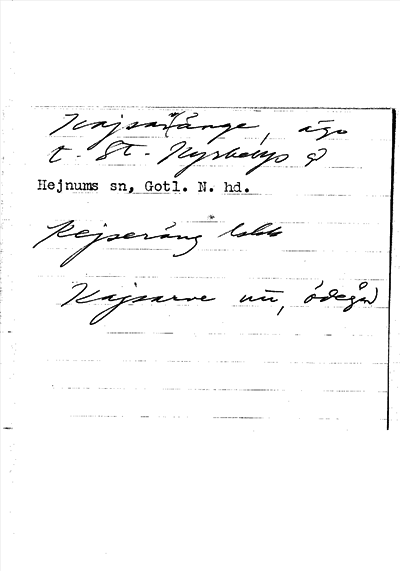 Kajsaränge, ägo
t. St. Kyrkebys
Hejnums sn, Gotl. N. hd.
Kejseräng
Kajsarve nu, ödegård